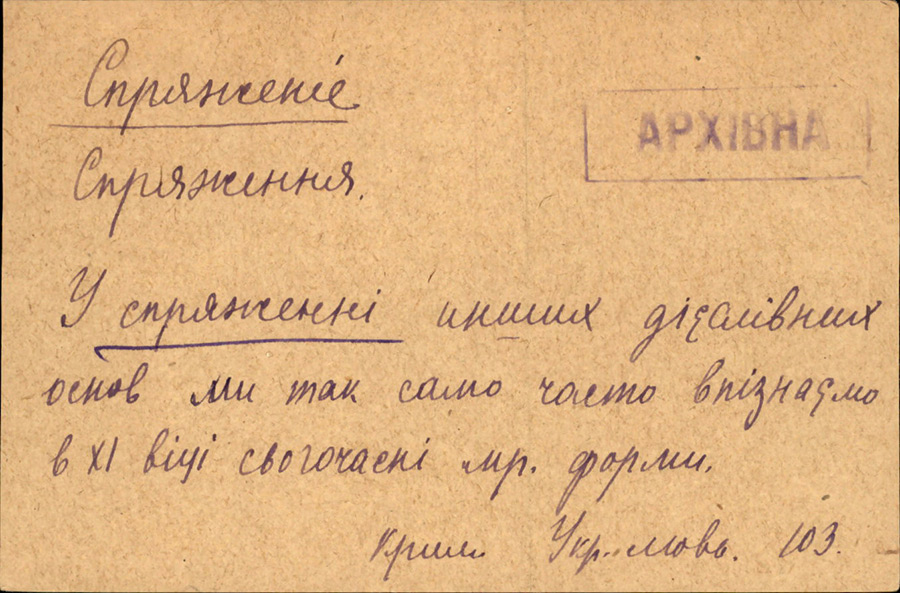 Спряженіе
АРХІВНА
Спряження.
У спряженні инших дієслівних
основ ми так само часто впізнаємо
в XI віці сьогочасні мр. форми.
Крим. Укр. мова. 103.